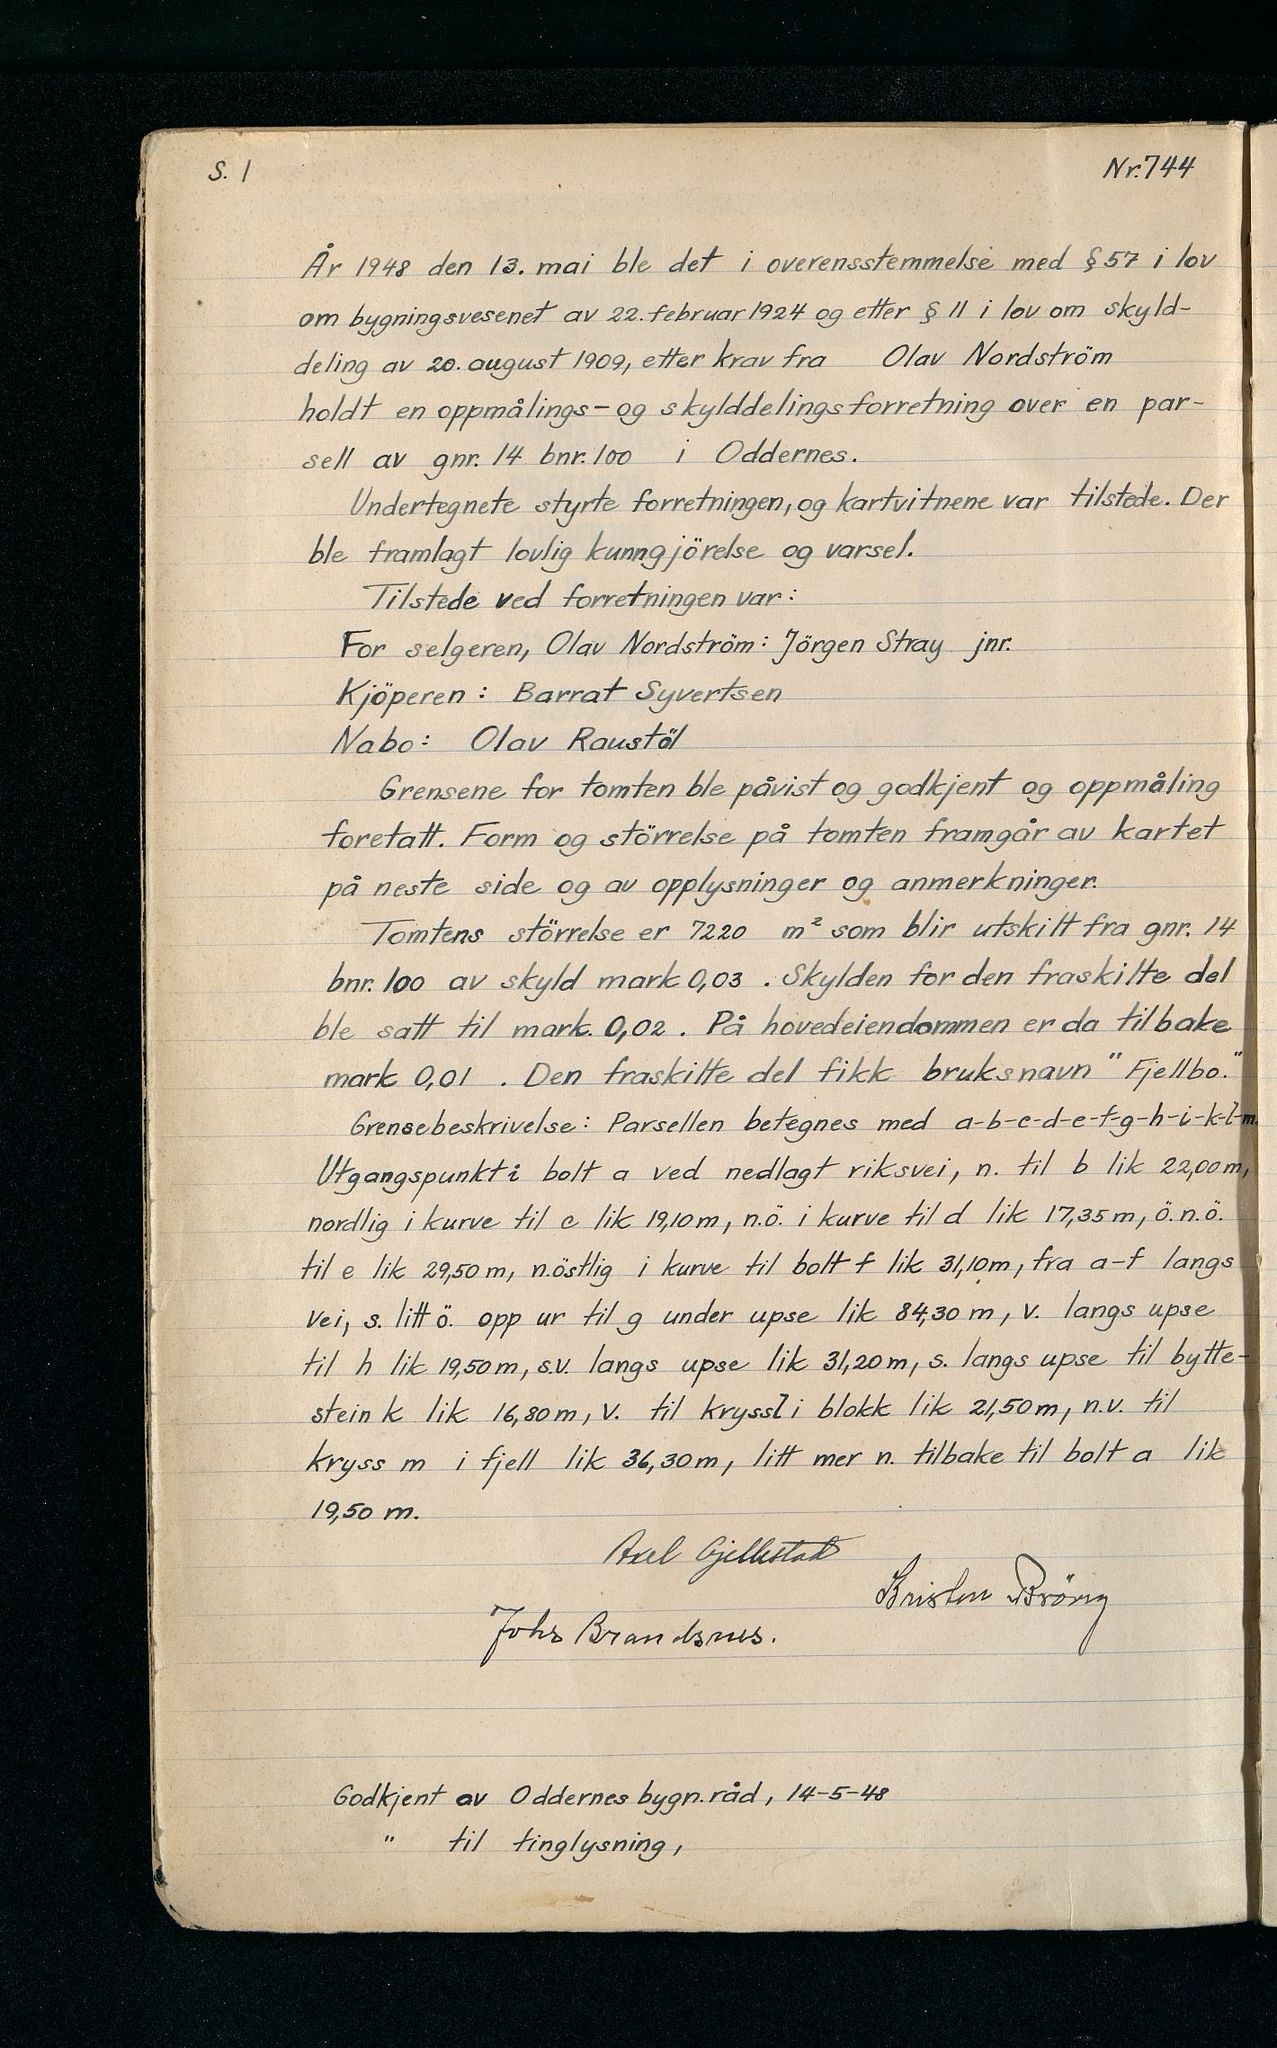 S. 1
Nr. 744
År 1948 den 13. mai ble det i overensstemmelse med § 57 i lov
om bygningsvesenet av 22. februar 1924 og etter § 11 i lov om skyld-
deling av 20. august 1909, etter krav fra Olav Nordström
holdt en oppmålings- og skylddelingsforretning over en par-
sell av gnr. 14 bnr. 100 i Oddernes.
Undertegnete styrte forretningen, og kartvitnene var tilstede. Der
ble framlagt lovlig kunngjörelse og varsel.
Tilstede ved forretningen var:
For selgeren, Olav Nordström: Jörgen Stray jnr.
Kjöperen: Barrat Syvertsen
Nabo: Olav Raustöl
Grensene for tomten ble påvist og godkjent og oppmåling
foretatt. Form og störrelse på tomten framgår av kartet
på neste side og av opplysninger og anmerkninger.
Tomtens störrelse er 7220 m² som blir utskilt fra gnr. 14
bnr. 100 av skyld mark 0,03. Skylden for den fraskilte del
ble satt til mark. 0,02. På hovedeiendommen er da tilbake
mark 0,01. Den fraskilte del fikk bruksnavn "Fjellbo."
Grensebeskrivelse: Parsellen betegnes med a-b-c-d-e-f-g-h-i-k-l-m.
Utgangspunkt i bolt a ved nedlagt riksvei, n. til b lik 22,00 m,
nordlig i kurve til c lik 19,10 m, n.ö. i kurve til d lik 17,35 m, ö.n.ö.
til e lik 29,50 m, n.östlig i kurve til bolt f lik 31,10 m, fra a-f langs
vei, s. litt ö. opp ur til g under upse lik 84,30 m, v. langs upse
til h lik 19,50 m, s.v. langs upse lik 31,20 m, s. langs upse til bytte-
stein k lik 16,80 m, v. til kryss l i blokk lik 21,50 m, n.v. til
kryss m i fjell lik 36,30 m, litt mer n. tilbake til bolt a lik
19,50 m.
Axel Gjellestad
Kristen Brövig
Johs Brandsnes.
Godkjent av Oddernes bygn. råd, 14-5-48
" til tinglysning,